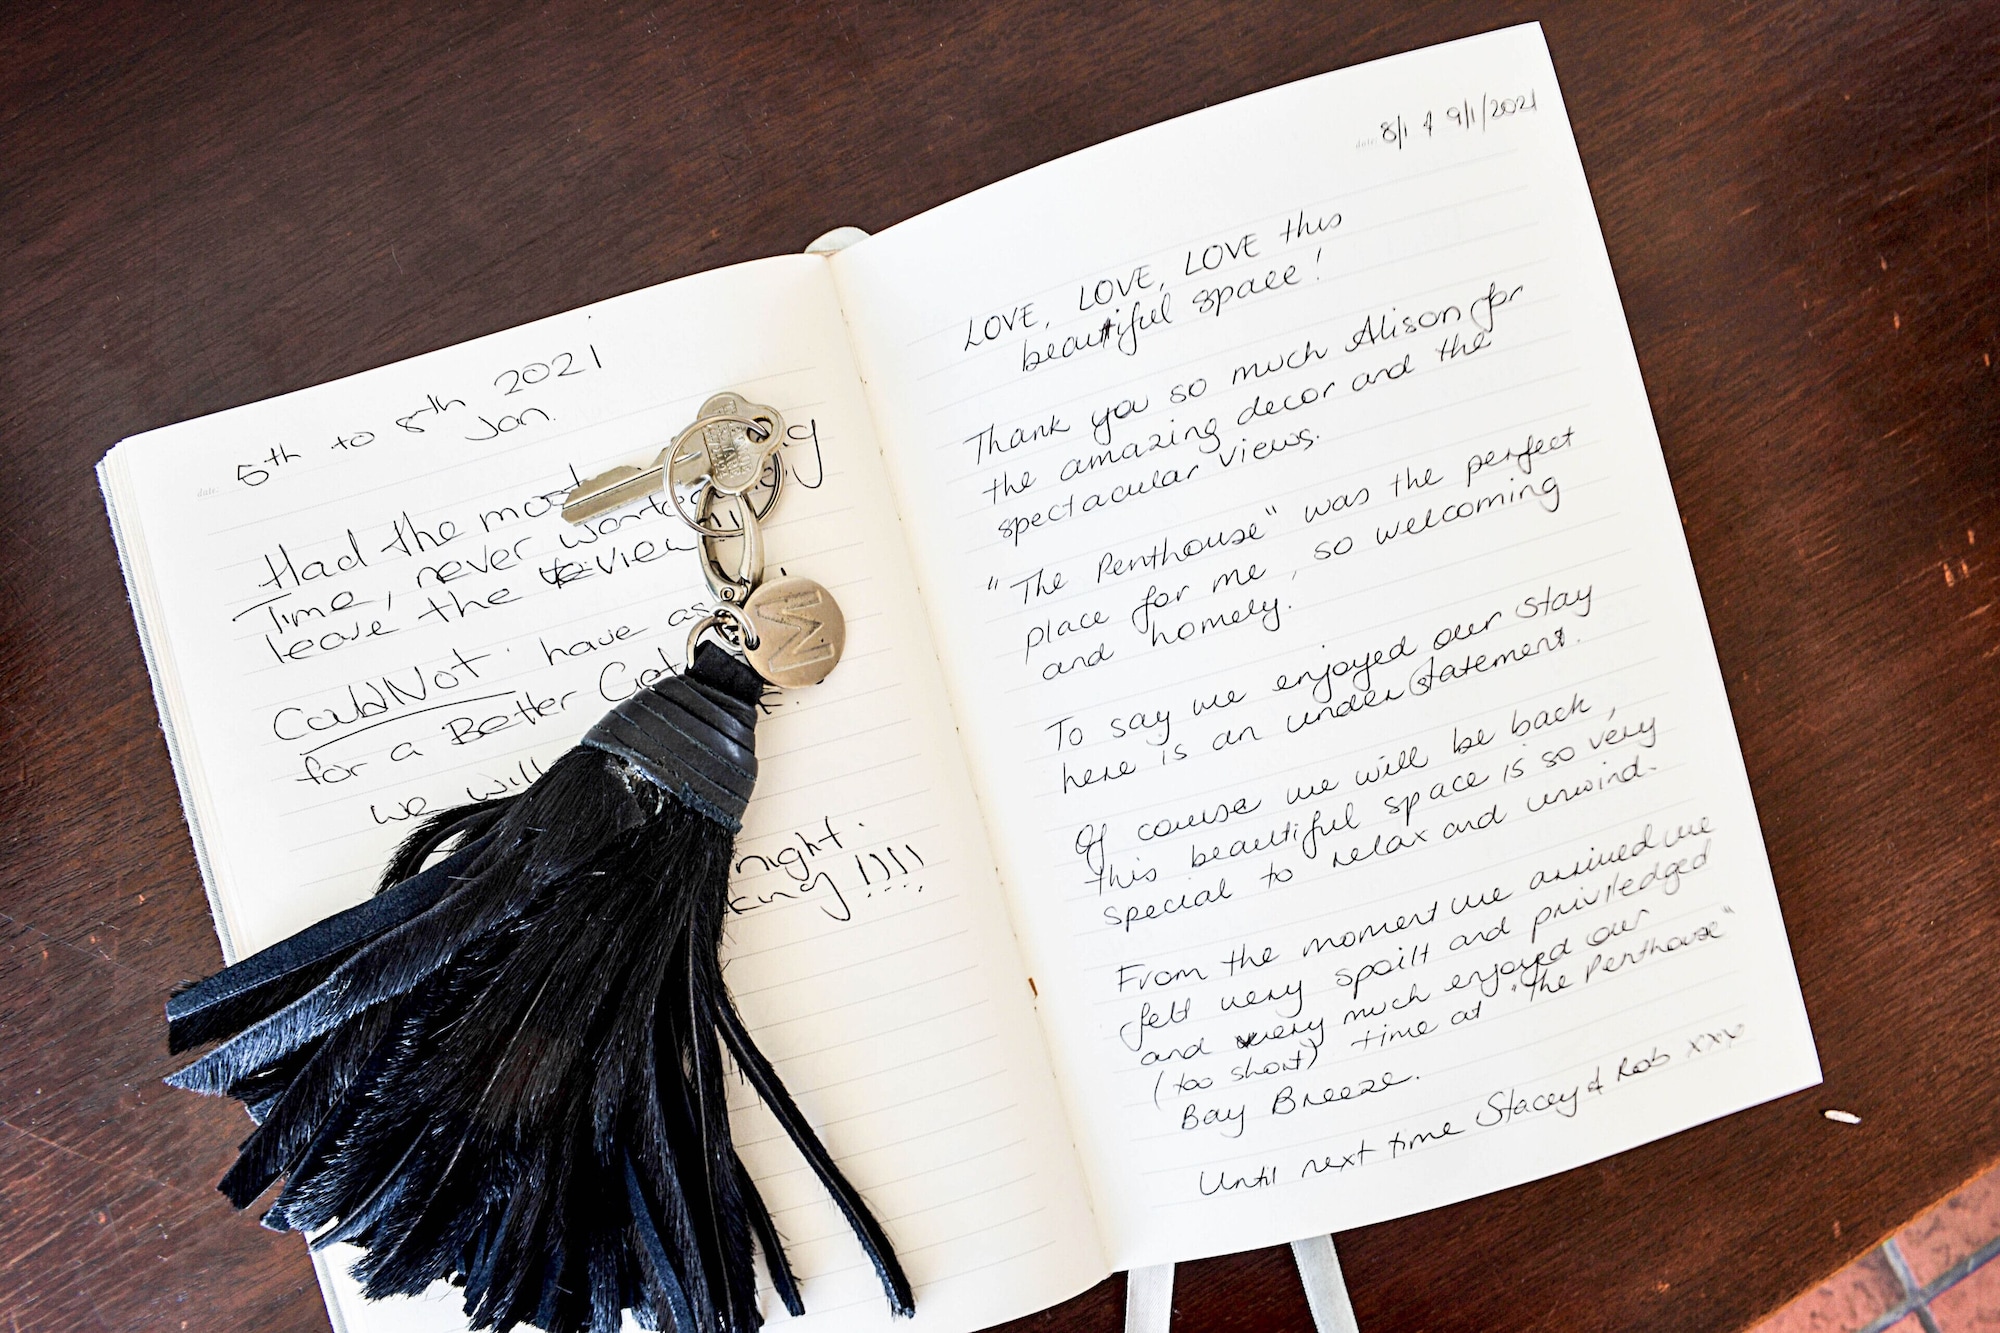 date:
5th to 8th 2021
Jan.
Had the most
Time, never wanted
leave the view
CouldNot have as
for a Better Get
we will
night.
king !!!!
M
date: 8/1 & 9/1/2021
LOVE, LOVE, LOVE this
beautiful space!
Thank you so much Alison for
the amazing decor and the
spectacular views.
"The Penthouse" was the perfect
place for me, so welcoming
and homely.
To say we enjoyed our stay
here is an understatement.
Of course we will be back,
this beautiful space is so very
special to relax and unwind.
From the moment we arrived we
felt very spoilt and priviledged
and very much enjoyed our
(too short) time at "The Penthouse"
Bay Breeze.
Until next time Stacey & Rob xxx